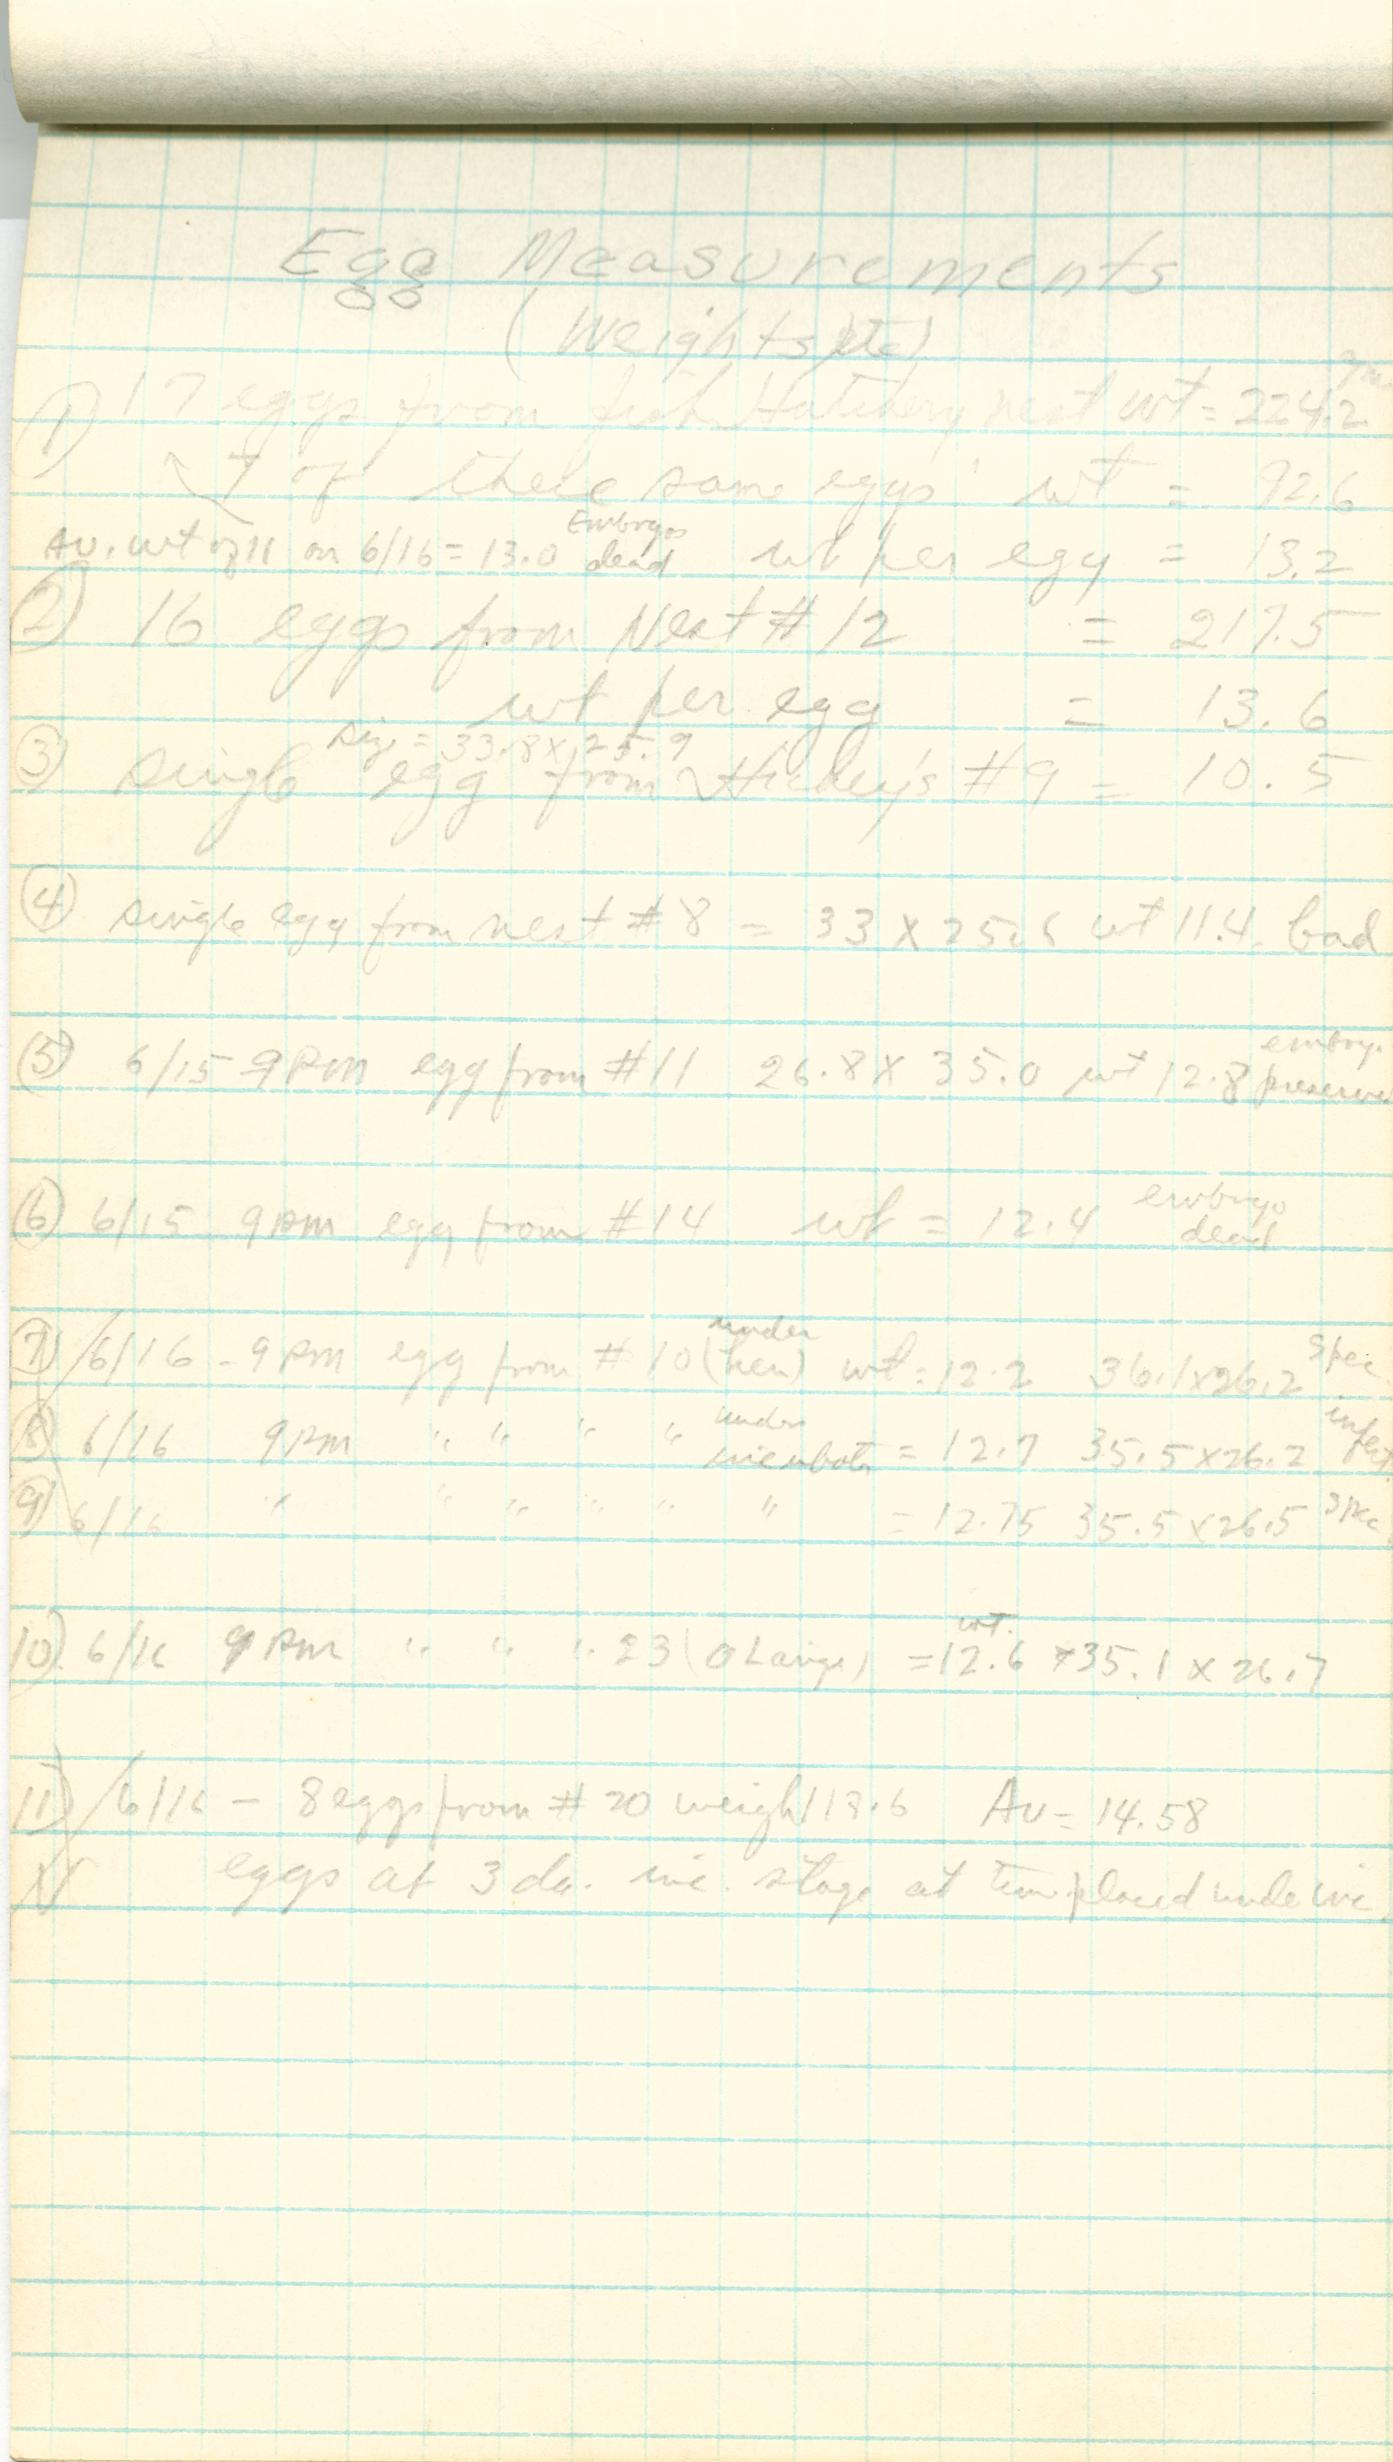 Egg Measurements
(Weights, etc)
gms
① 17 eggs from fish Hatchery nest wt = 224.2
7 of these same eggs wt = 92.6
Av. wt of 11 on 6/16 = 13.0 Embryos dead wt per egg = 13.2
② 16 eggs from Nest # 12 = 217.5
wt per egg = 13.6
size = 33.8 x 25.9
③ single egg from Hickey's #9 = 10.5
④ single egg from nest #8 = 33 x 25.6 wt 11.4. bad
⑤ 6/15 9 PM egg from #11 26.8 x 35.0 wt 12.8 embryo preserve
⑥ 6/15 9 PM egg from #14 wt = 12.4 embryo dead
⑦ 6/16 - 9 PM egg from #10 (under hen) wt = 12.2 36.1 x 26.2 spec.
⑧ 6/16 9 PM " " " " under = 12.7 35.5 x 26.2
⑨ 6/16 " " " " " " = 12.75 35.5 x 26.5 spec
wt.
10) 6/16 9 PM " " " 23 = 12.6 35.1 x 26.7
11) 6/16 - 8 eggs from # 20 weigh 113.6 Av = 14.58
eggs at 3 da. inc. stage at time placed unde inc.